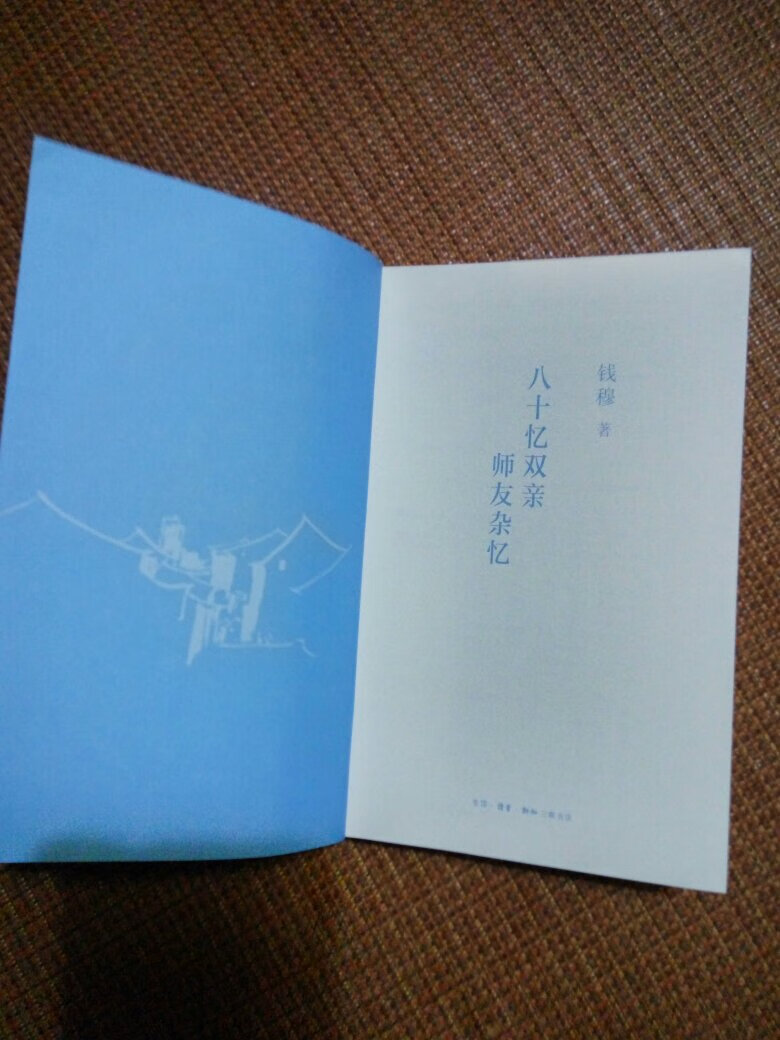 钱穆 著
八十忆双亲
师友杂忆
生活·读书·新知三联书店